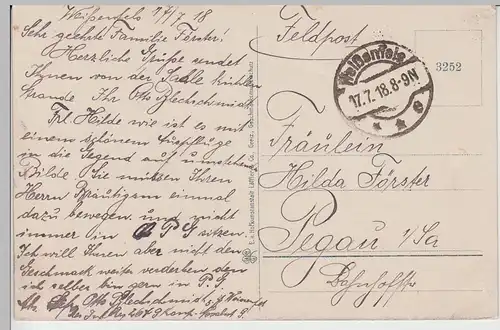 Weißenfels 17/7 18
Sehr geehrte Familie Förster!
Herzliche Grüße sendet
Ihnen von der Saale kühlen
Strande Ihr Otto Blechschmidt
Frl. Hilde wie ist es mit
einem schönem Ausfluge
in die Gegend auf umstehen
Bilde. Sie müssen Ihren
Herrn Bräutigam einmal
dazu bewegen und nicht
immer in P.G. sitzen.
Ich will Ihnen aber nicht den
Geschmack weiter verderben, denn
ich selber bin gern in P.G.
Otto Blechschmidt
Feldpost
3252
Weißenfels
17.7.18.8-9N
* * e
Fräulein
Hilda Förster
Pegau i/Sa
Bahnhofstr